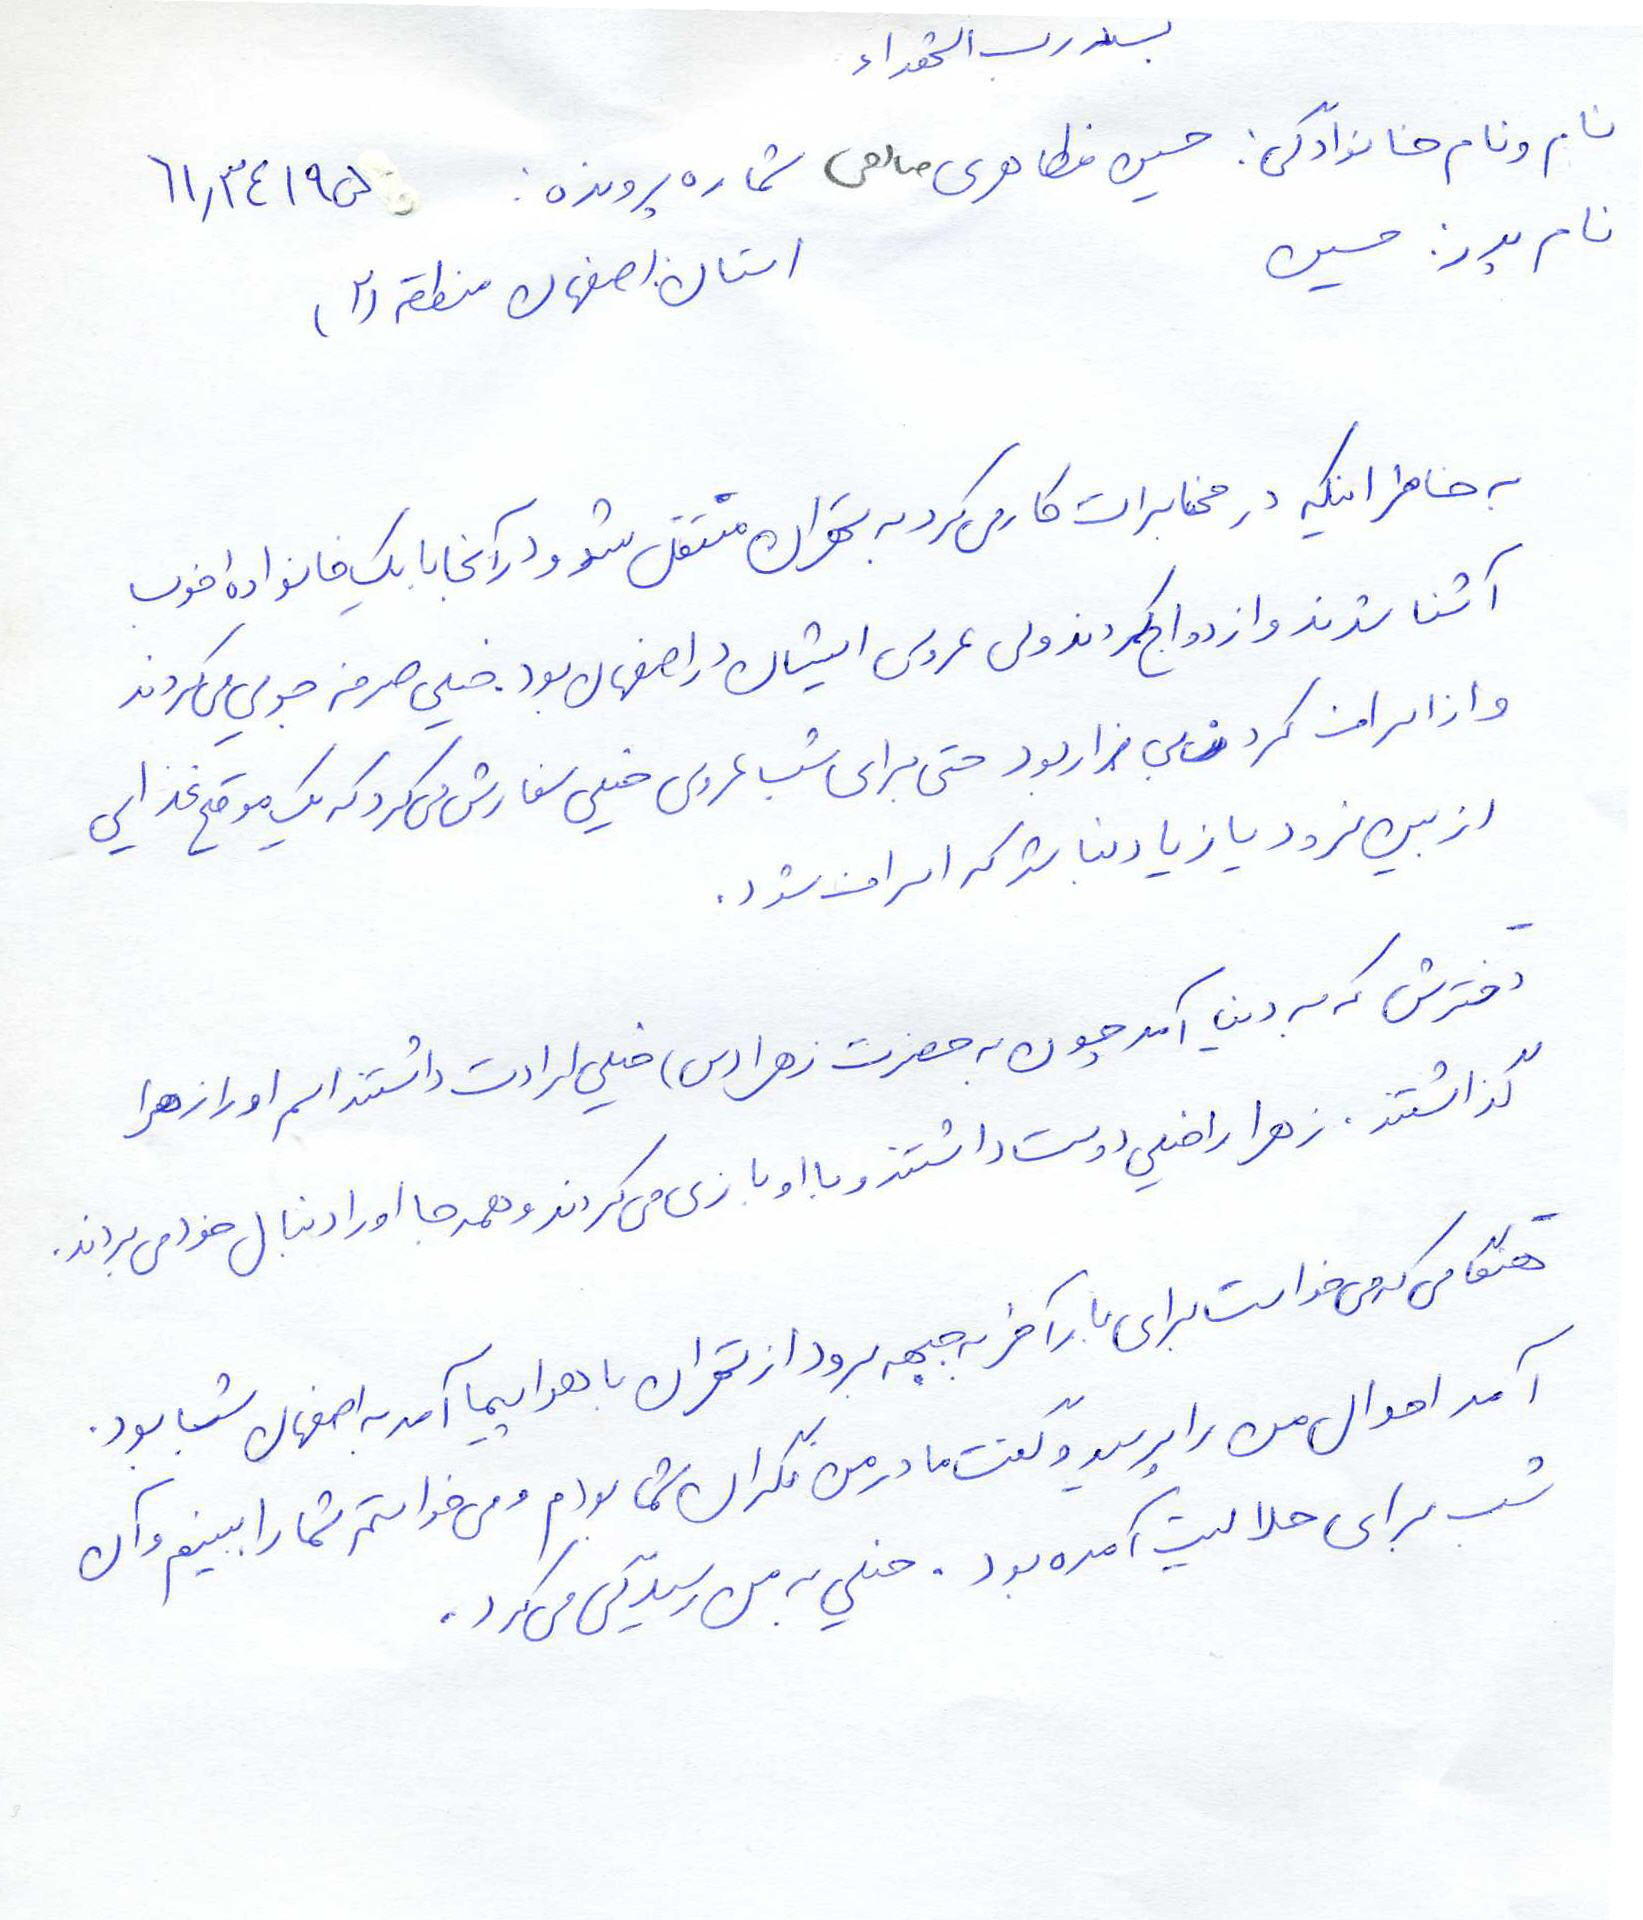 بسم رب الشهداء
نام و نام خانوادگی: حسین مظاهری صالحی شماره پرونده: ۶۱٫۳۴۱۹
نام پدر: حسین
استان: اصفهان منطقه (۲)
به خاطر اینکه در مخابرات کار می کرد به تهران منتقل شد و در آنجا با یک خانواده خوب
آشنا شدند و ازدواج کردند ولی عروسی ایشان در اصفهان بود. خیلی صرفه جویی می کردند
و از اسراف کردن بی زار بود حتی برای شب عروسی خیلی سفارش می کرد که یک موقع غذایی
از بین نرود یا زیاد نباشد که اسراف شود.
- دخترش که به دنیا آمد چون به حضرت زهرا (س) خیلی ارادت داشتند اسم او را زهرا
گذاشتند. زهرا را خیلی دوست داشتند و با او بازی می کردند و همه جا او را دنبال خود می بردند.
- هنگامی که می خواست برای بار آخر به جبهه برود از تهران با هواپیما آمد به اصفهان شب بود.
آمد احوال من را پرسید و گفت مادر من نگران شما بودم و می خواستم شما را ببینم و آن
شب برای حلالیت آمده بود. خیلی به من رسیدگی می کرد.